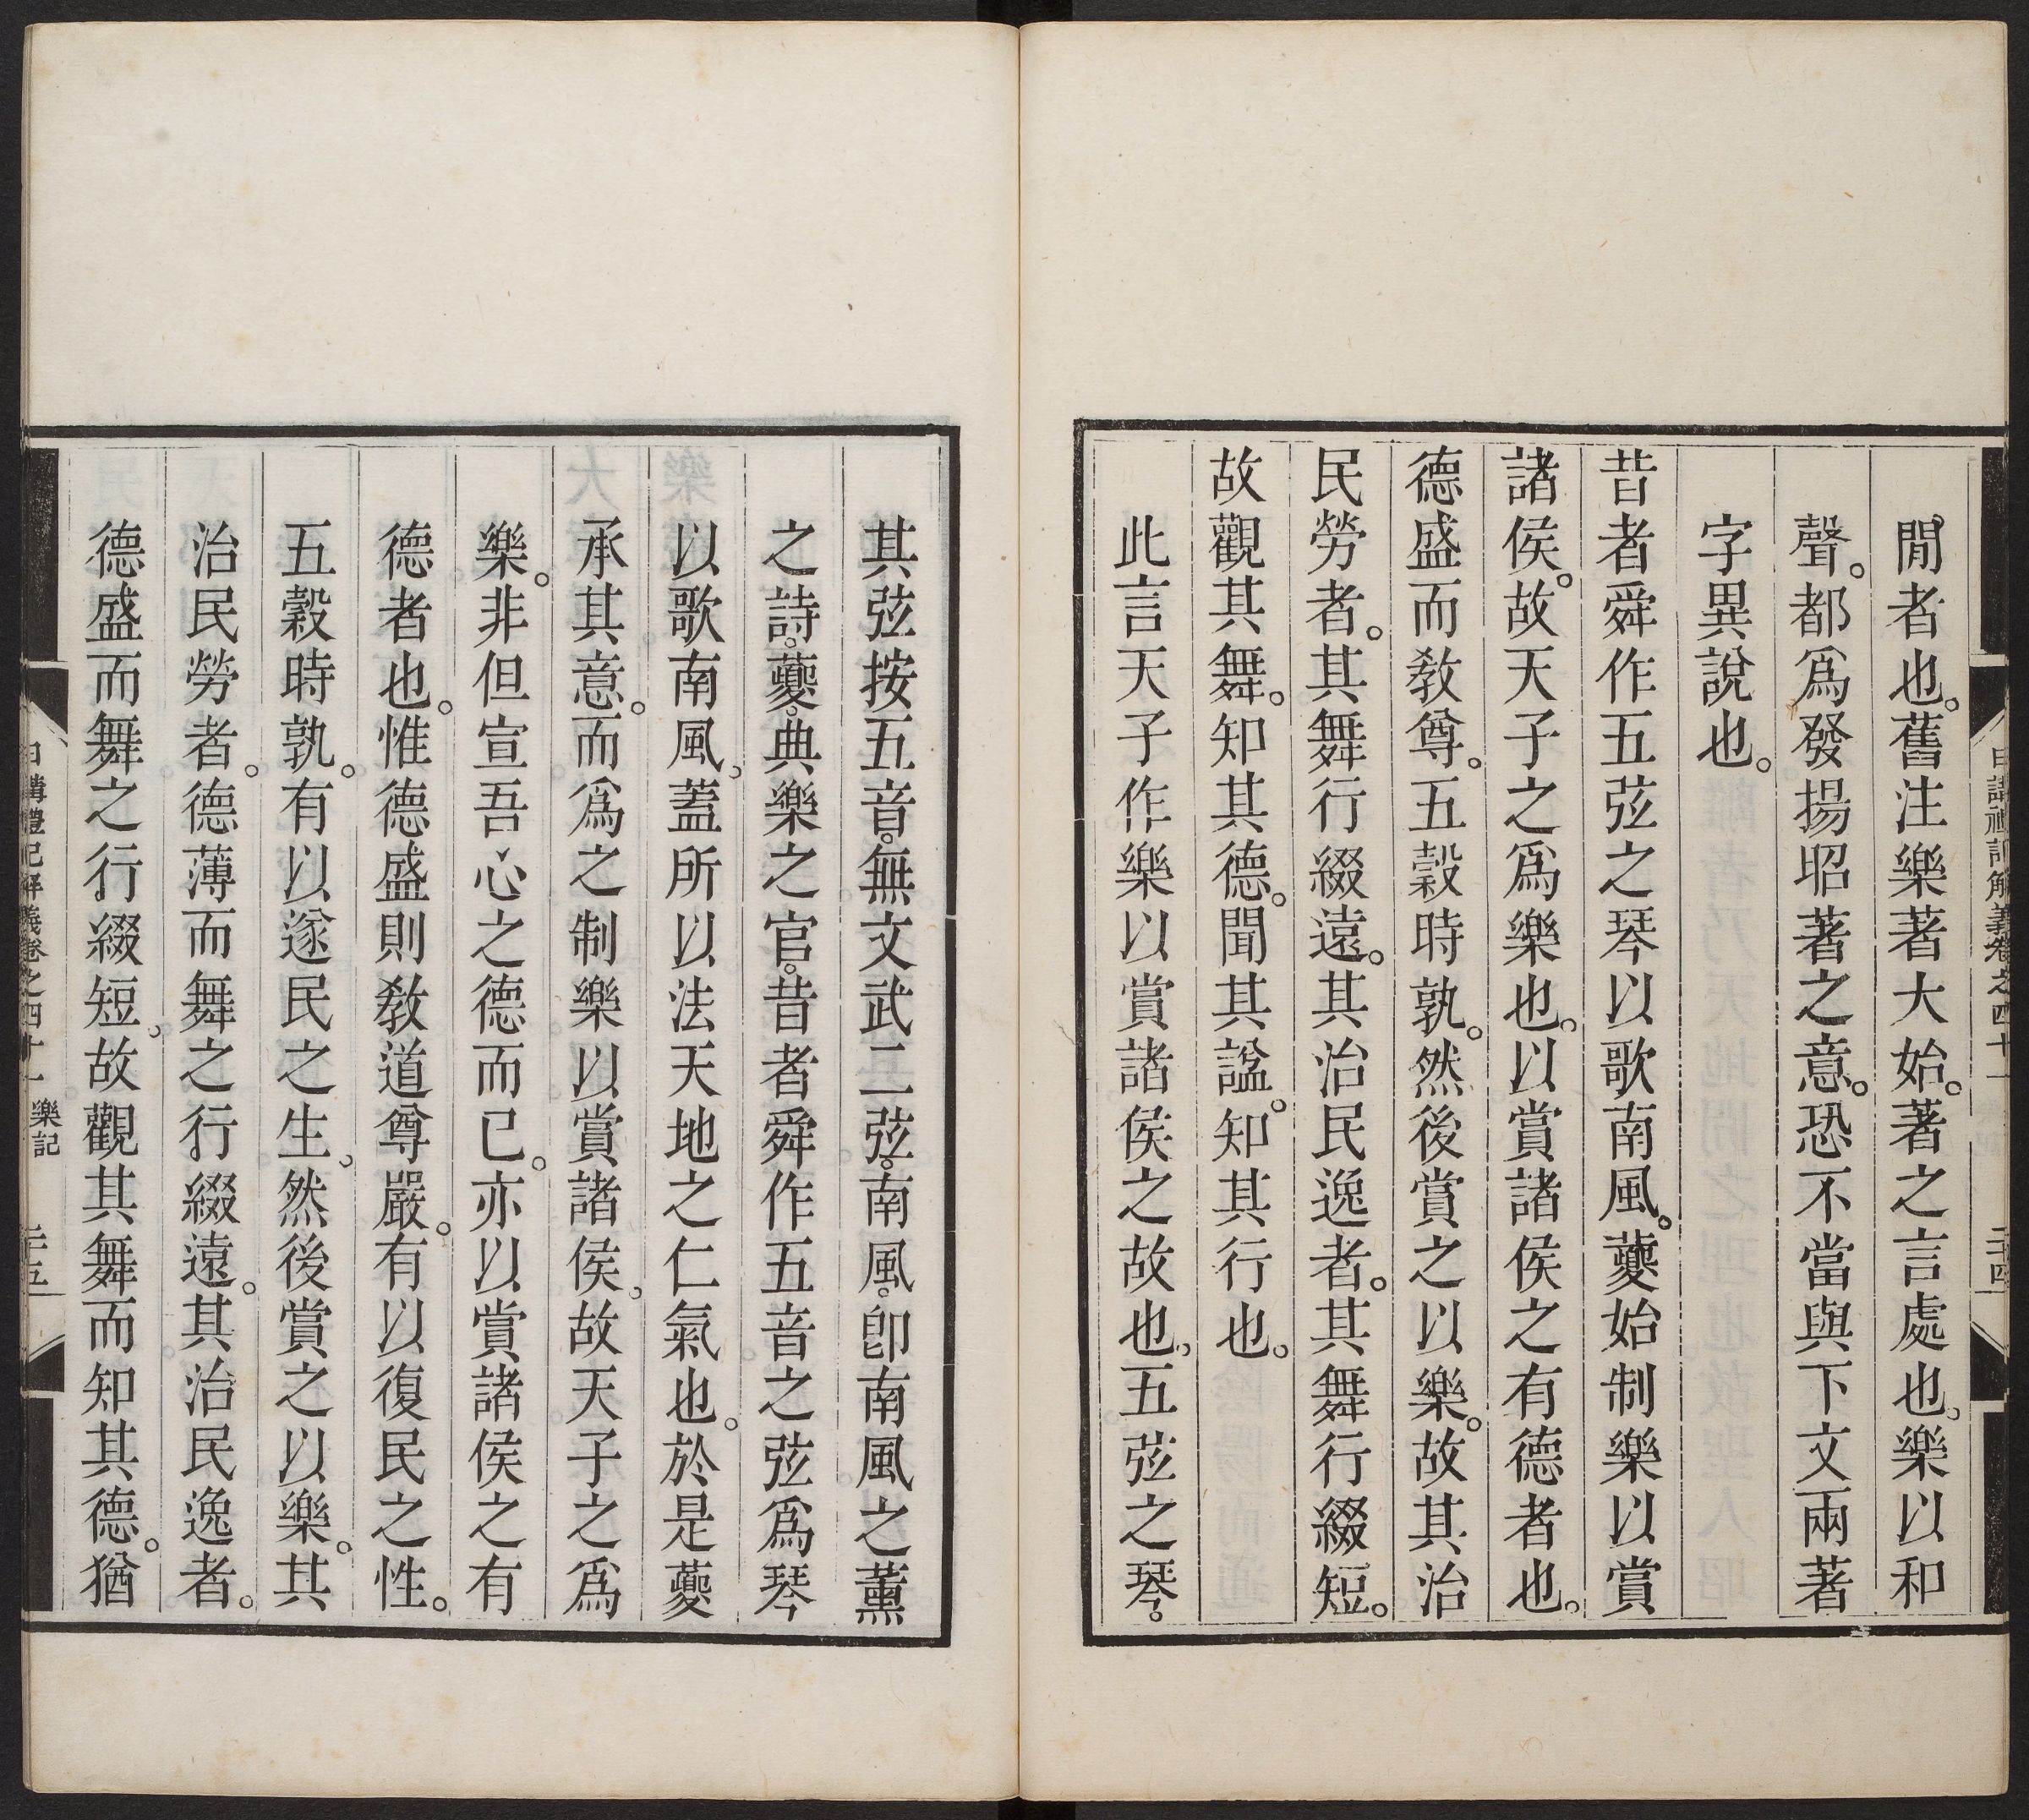 日講禮記解義卷之四十一 二十四
閒者也。舊注樂著大始。著之言處也。樂以和
聲。都爲發揚昭著之意。恐不當與下文兩著
字異說也。
昔者舜作五弦之琴以歌南風。夔始制樂以賞
諸侯。故天子之爲樂也。以賞諸侯之有德者也。
德盛而敎尊。五穀時孰。然後賞之以樂。故其治
民勞者。其舞行綴遠。其治民逸者。其舞行綴短。
故觀其舞。知其德。聞其謚。知其行也。
此言天子作樂以賞諸侯之故也。五弦之琴。
其弦按五音。無文武二弦。南風。卽南風之薰
之詩。夔。典樂之官。昔者舜作五音之弦爲琴
以歌南風。蓋所以法天地之仁氣也。於是夔
承其意。而爲之制樂以賞諸侯。故天子之爲
樂。非但宣吾心之德而已。亦以賞諸侯之有
德者也。惟德盛則敎道尊嚴。有以復民之性。
五穀時孰。有以遂民之生。然後賞之以樂。其
治民勞者。德薄而舞之行綴遠。其治民逸者。
德盛而舞之行綴短。故觀其舞而知其德。猶
日講禮記解義卷之四十一 樂記 二十五